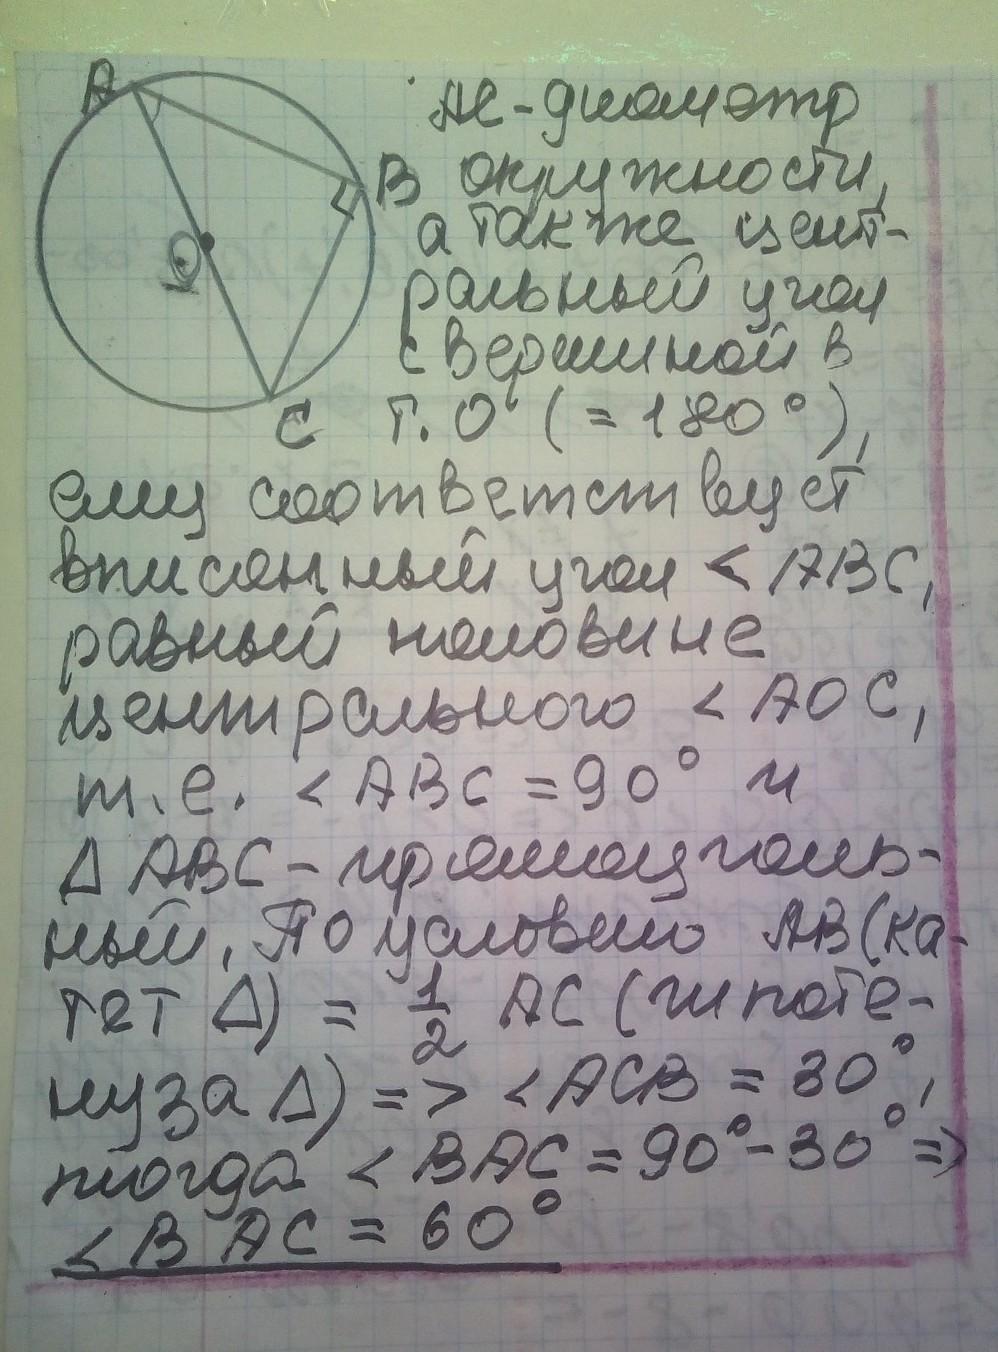 А
В
О
С
АС - диаметр
окружности,
а также цент-
ральный угол
с вершиной в
т. О (= 180°),
ему соответствует
вписанный угол < АВС,
равный половине
центрального < АОС,
т.е. < АВС = 90° и
Δ АВС - прямоуголь-
ный. По условию АВ (ка-
тет Δ) = 1/2 АС (гипоте-
нуза Δ) => < АСВ = 30°,
тогда < ВАС = 90° - 30° =>
< ВАС = 60°